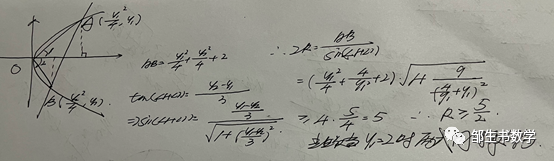 A(y₁²/4, y₁)
O
B(y₂²/4, y₂)
AB = y₁²/4 + y₂²/4 + 2
= y₁-y₂/3
⇒ = (y₁-y₂)/3 / √(1+((y₁-y₂)/3)²)
∴ 2R = AB/
= (y₁²/4 + 4/y₁² + 2) √(1 + 9/(4/y₁ + y₁)²)
≥ 4 · 5/4 = 5 ∴ R ≥ 5/2.
y₁=2时
邹生书数学